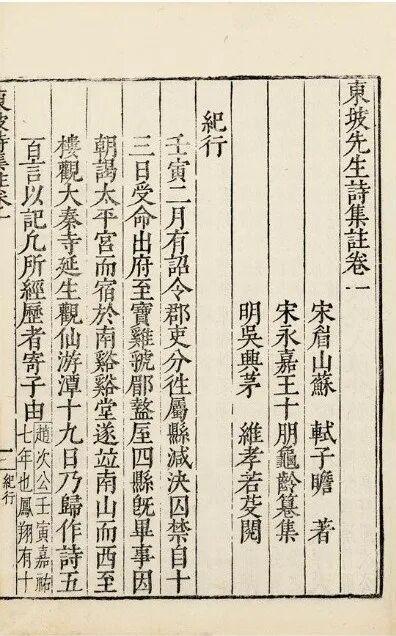 東坡先生詩集註卷一
宋眉山蘇 軾子瞻 著
宋永嘉王十朋龜齡纂集
明吳興茅 維孝若芟閱
紀行
壬寅二月有詔令郡吏分徃屬縣減決囚禁自十
三日受命出府至寶雞虢郿盩厔四縣旣畢事因
朝謁太平宮而宿於南谿谿堂遂竝南山而西至
樓觀大秦寺延生觀仙游潭十九日乃歸作詩五
百言以記凢所經歷者寄子由
趙次公壬寅嘉祐
七年也鳳翔有十
東坡詩集註卷一
一
紀行